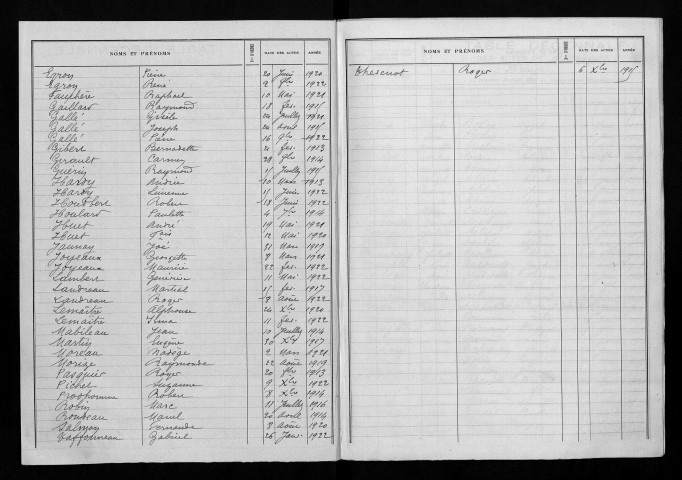 NOMS ET PRÉNOMS DATE DES ACTES ANNÉE
Egron Pierre 20 Juin 1920
Egron René 2 1922
Fauchère Raphaël 10 Mai 1920
Gaillard Raymond 18 fev. 1915
Gallé Gisèle 24 Juillet 1920
Gallé Joseph 24 Août 1915
Gallé Pierre 16 9bre 1922
Gibert Bernadette 2 fev. 1913
Girault Carmen 28 9bre 1914
Guérin Raymond 15 Juillet 1915
Hardy Andrée 10 Mars 1913
Hardy Lucienne 15 Juin 1922
Houdbert Robert 18 Juin 1922
Houlard Paulette 4 7bre 1914
Huet André 19 Mai 1920
Huet 12 Mai 1920
Jaunay José 31 Mars 1917
Joyeaux Georgette 8 Mars 1920
Joyeaux Maurice 22 fev. 1922
Lambert Geneviève 11 Mai 1922
Landreau Martial 15 fev. 1917
Landreau Roger 9 Août 1922
Lemaître Alphonse 24 Xbre 1920
Lemaître Irma 11 fev. 1922
Mabileau Jean 10 Juillet 1914
Martin Eugène 30 Xbre 1917
Moreau Nadège 2 Mars 1920
Raymonde 22 Août 1919
Pasquier Roger 20 9bre 1913
Pichet Suzanne 9 Xbre 1922
Prodhomme Robert 8 Xbre 1914
Robin Marc 11 Juillet 1916
Rondeau Marcel 20 Avril 1914
Salmon Fernande 8 Août 1920
Taffonneau Gabriel 26 Janv. 1922
NOMS ET PRÉNOMS DATE DES ACTES ANNÉE
Thesenot Roger 6 Xbre 1915